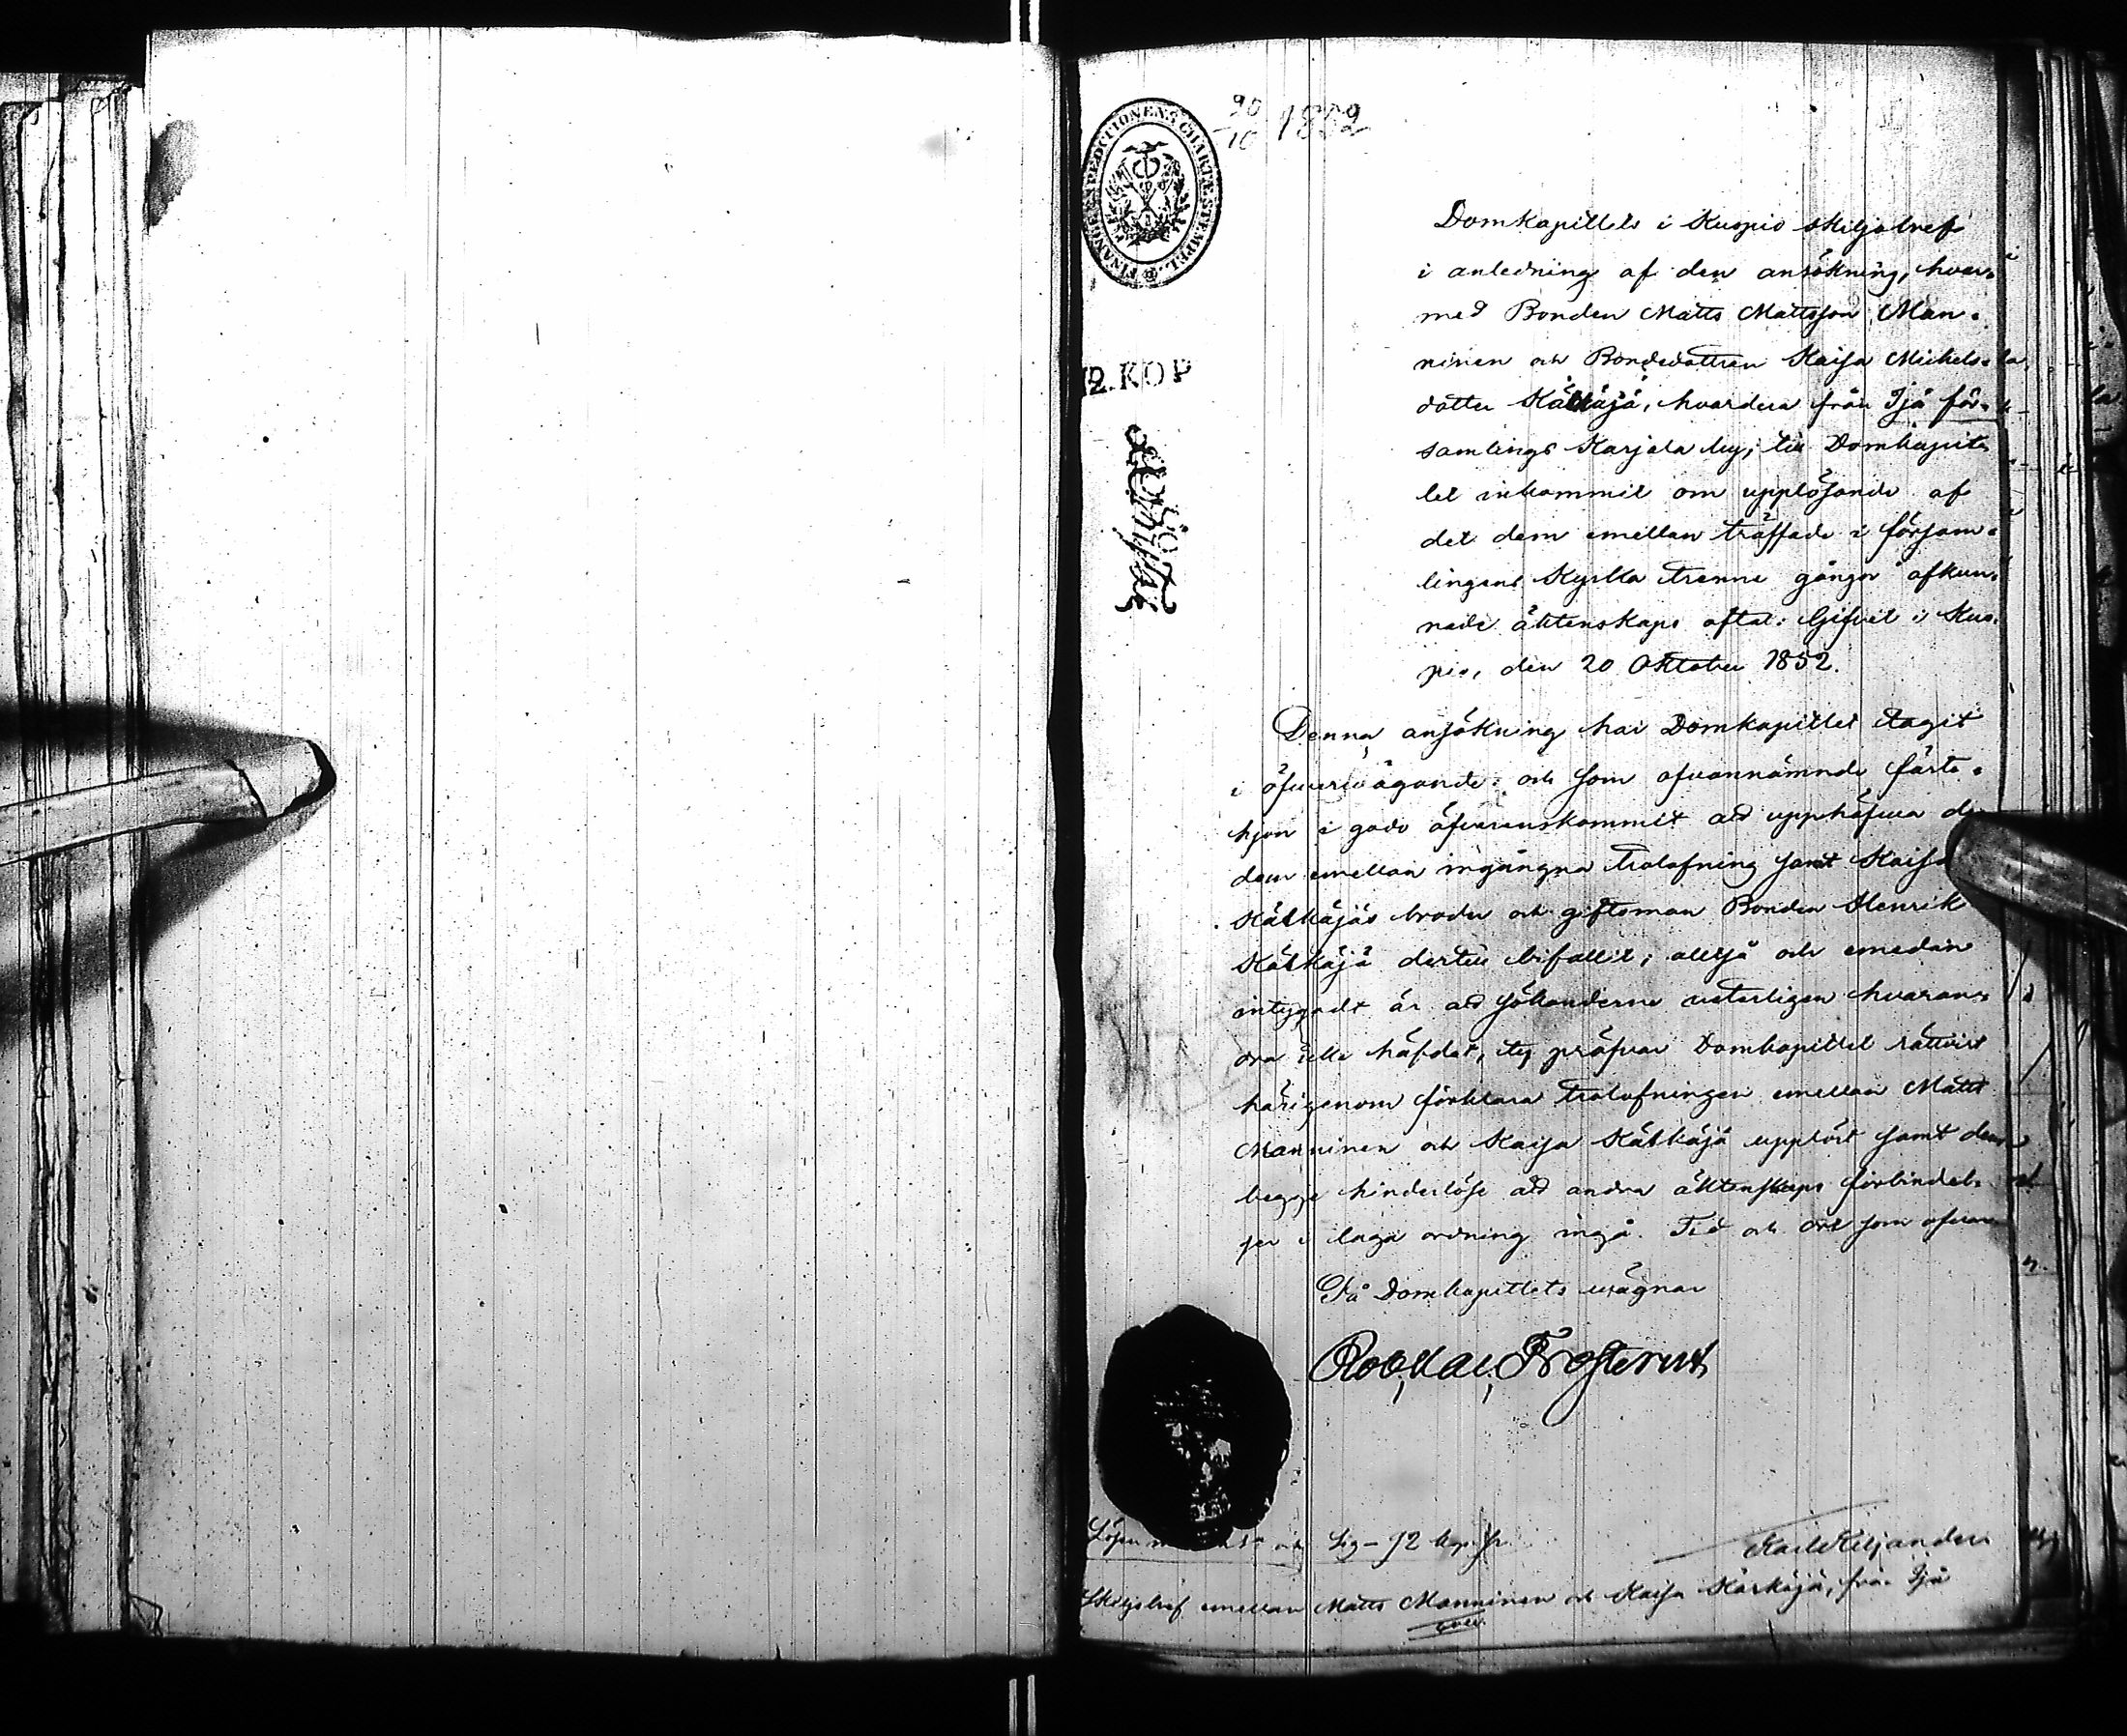 20/10 1852
FINANCE-EXPEDITIONENS CHARTÆ STEMPEL.
12. KOP
Domkapitlets i Kuopio skiljobref
i anledning af den ansökning, hvar-
med Bonden Matts Mattsson Man-
ninen och Bondedottren Kaisa Michels-
dotter Kälkäjä, hvardera från Ijå för-
samlings Karjala by, till Domkapit-
let inkommit om upplösande af
det dem emellan träffade i försam-
lingens Kyrka trenne gångor afkun-
nade äktenskaps aftal. Gifvet i Kuo-
pio, den 20 Oktober 1852.
Denna ansökning har Domkapitlet tagit
i öfvervägande: och som ofvannämnde fäste-
hjon i godo öfverenskommit att upphäfva
dem emellan ingångna trolofning samt Kaisa
Kälkäjäs broder och giftoman Bonden Henrik
Kälkäjä dertill bifallit; alltså och emedan
intygadt är att sökanderne veterligen hvaran-
dra icke häfdat, ty pröfvar Domkapitlet rättvist
härigenom förklara trolofningen emellan Matts
Manninen och Kaisa Kälkäjä upplöst samt dem
begge hinderlöse att andra äktenskaps förbindel-
ser i laga ordning ingå. Tid och ort som ofvan
På Domkapitlets vägnar
Rob. Val. Frosterus
Lösen och Sig- 72 kop. Sr.
Karl Kiljander.
Skiljobref emellan Matts Manninen och Kaisa Kärkäjä, från Ijå